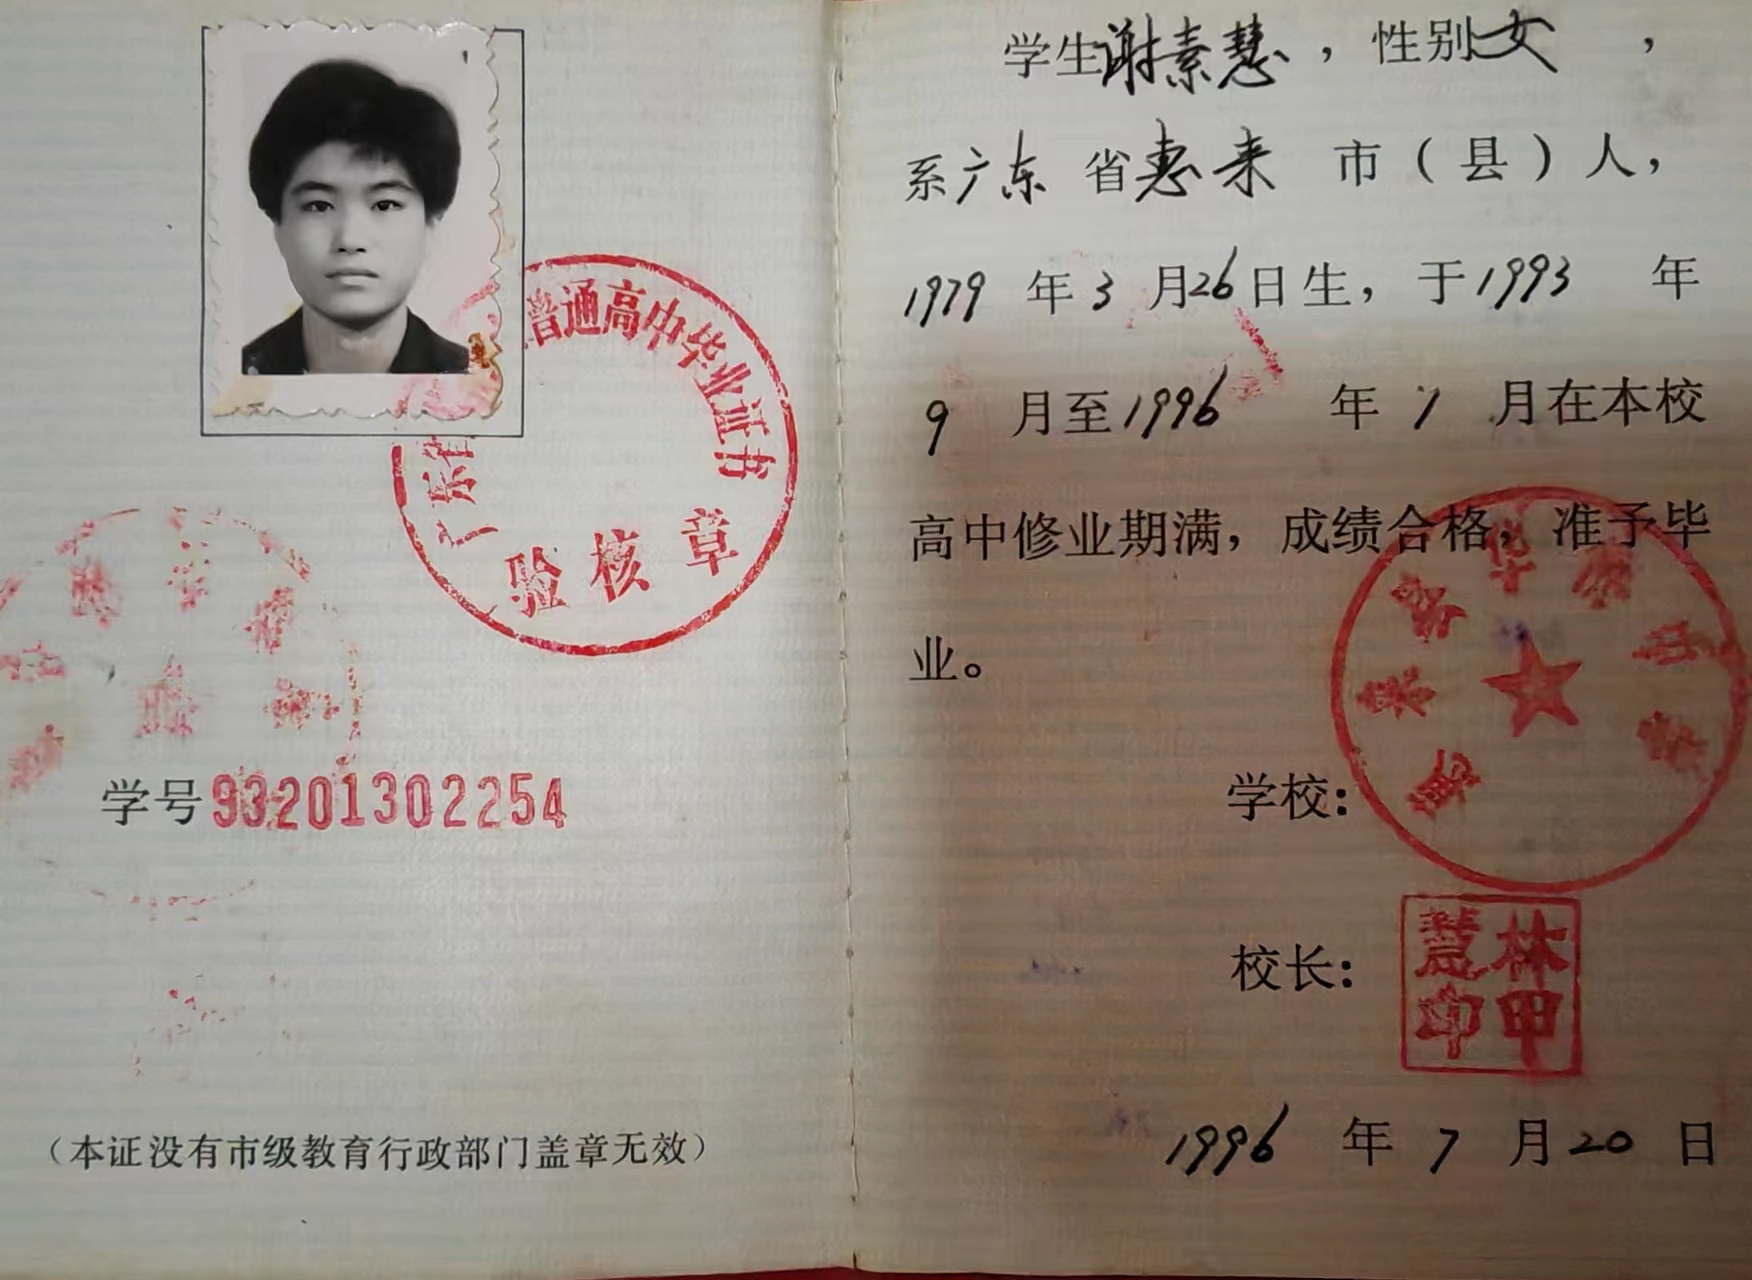 广东省普通高中毕业证书
验核章
学号93201302254
（本证没有市级教育行政部门盖章无效）
学生谢素慧，性别女，
系广东省惠来市（县）人，
1979年3月26日生，于1993年
9月至1996年7月在本校
高中修业期满，成绩合格，准予毕
业。
学校：
校长：
林甲慧印
1996年7月20日